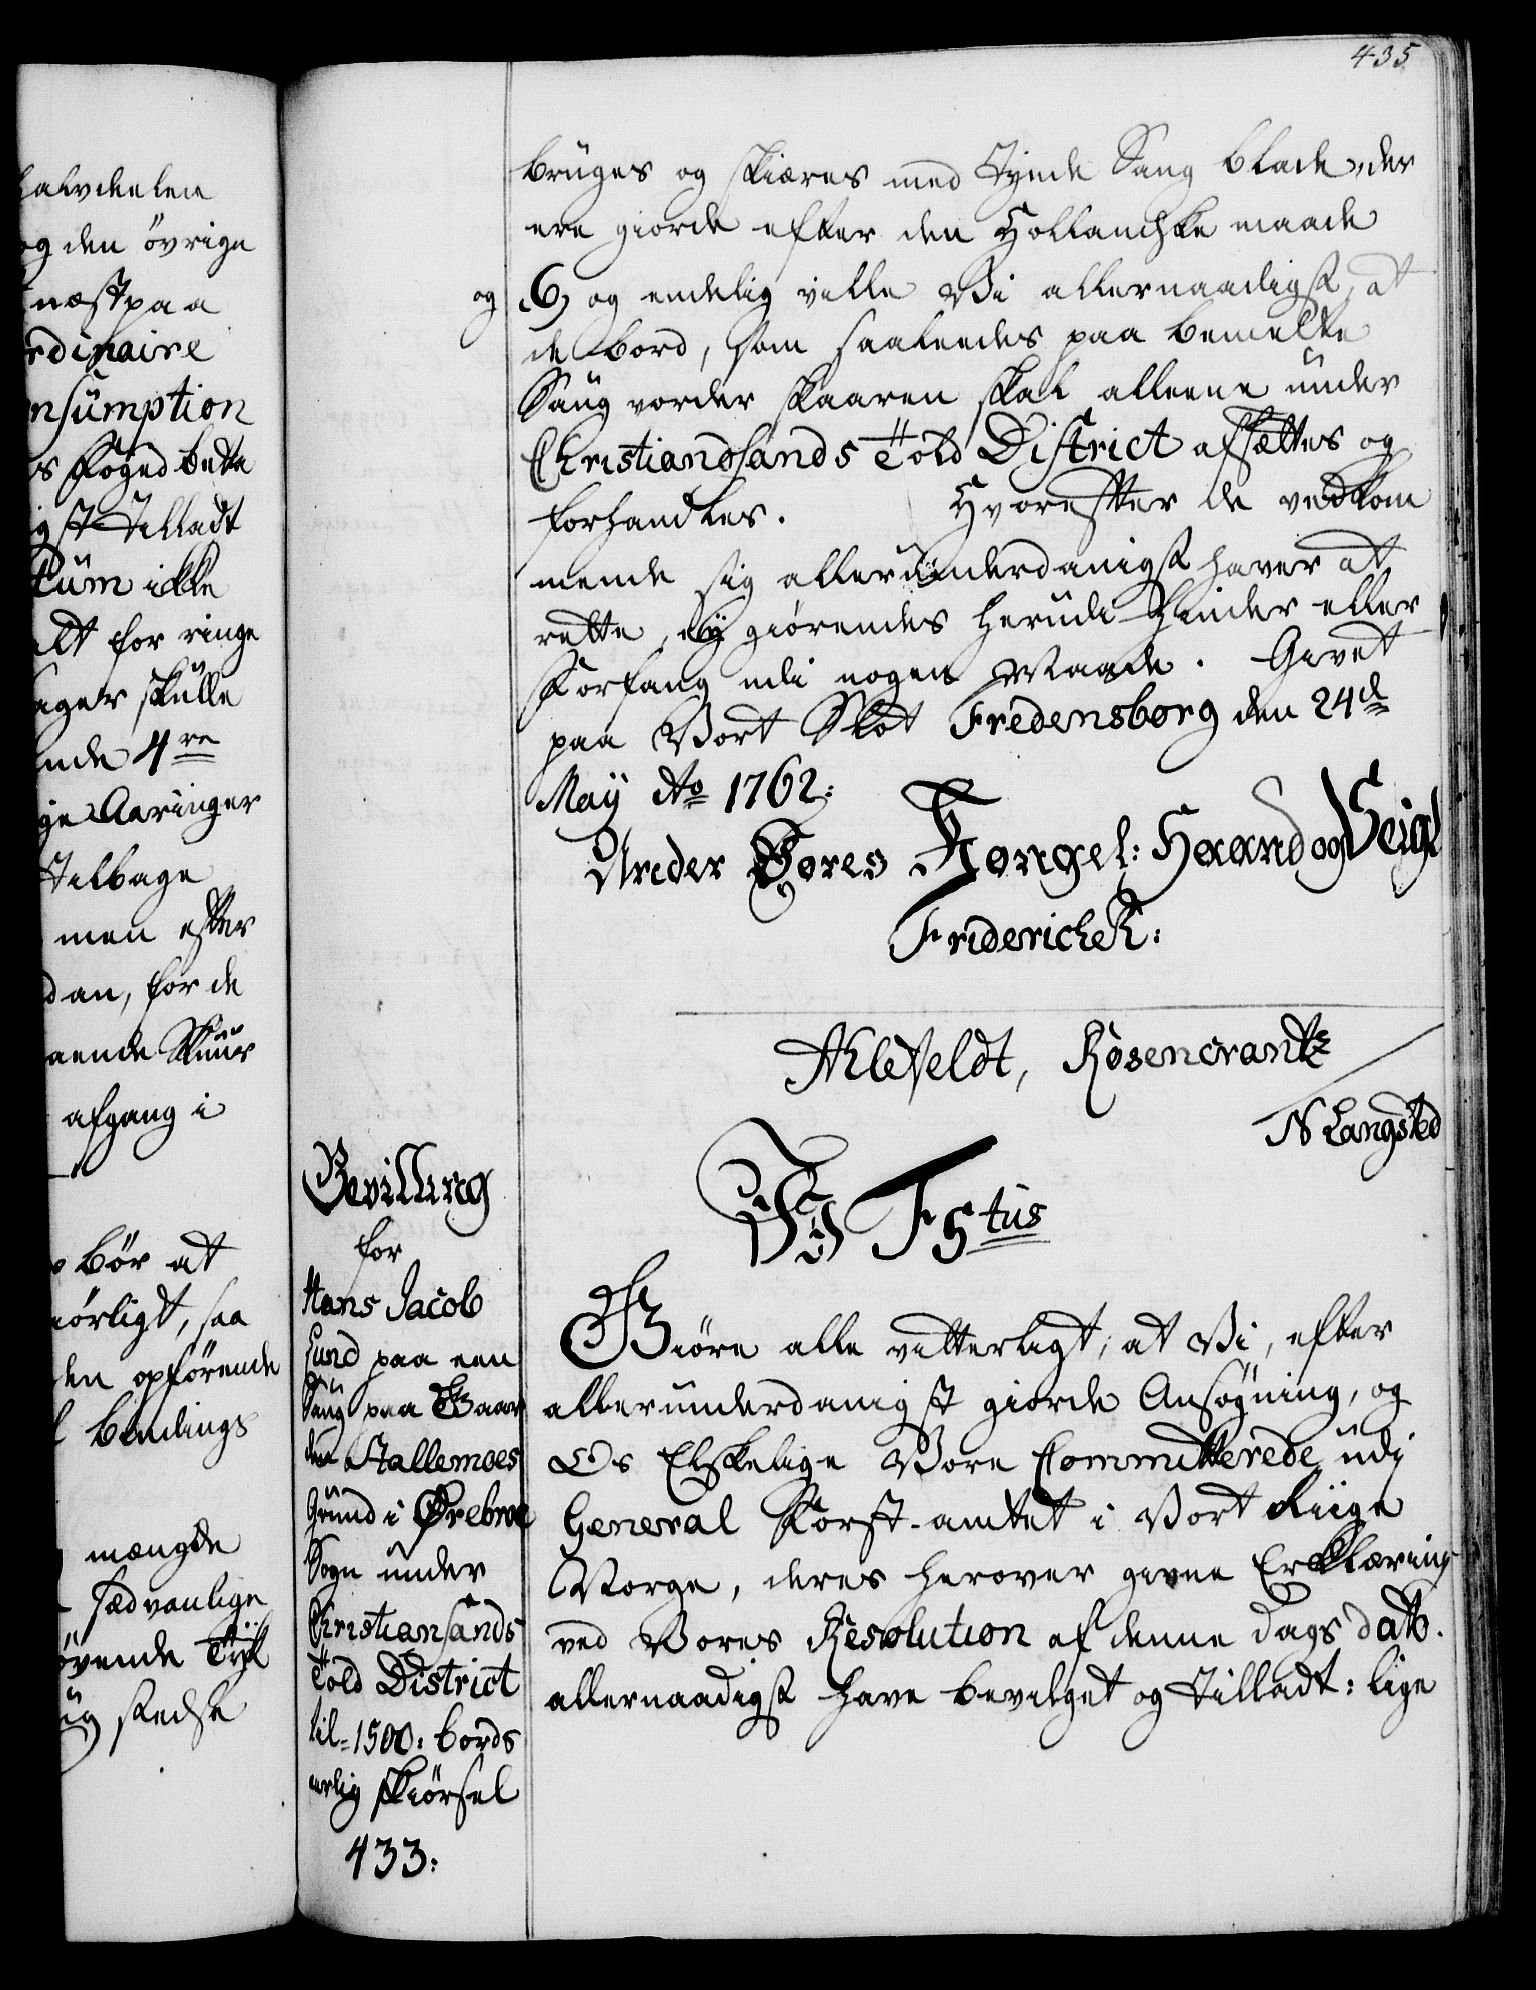 435
halvdeelen
og den övrige
næst paa
rdinaire
nsumption
s Foged dette
igst Tilladt
tum ikke
alt for ringe
ager skulle
ende 4re
ige Aaringer
Tilbage
men efter
dan, for de
aende Skuur
afgang i
bör at
iörligt, saa
den opförende
l bindings
mængde
sædvanlige
övende Tÿk
ug stedse
bruges og skiæres med Tynde Saug blade, der
ere giorde efter den Hollandske maade
og 6, og endelig ville Vi allernaadigst, at
de bord, som saaleedes paa bemelte
Saug vorder skaaren skal alleene under
Christiandsands Told District afsættes og
forhandles. Hvorefter de vedkom
mende sig allerunderdanigst haver at
rette, eÿ giörendes herudi Hinder eller
Forfang udi nogen Maade. Givet
paa Vort Slot Fredensborg den 24de
Maÿ Ao 1762:
Under Vores Kongel: Haand og Seigl
Friderich R:
Ahlefeldt, Rosencrantz
N Langsted
Bevilling
for
Hans Jacob
Lund paa een
Saug paa Gaar
den Stallemoes
Grund i Örebroe
Sogn under
Christiansands
Told District
til 1500: bords
aarlig skiörsel
433:
Vi F5tus
Giöre alle vitterligt, at Vi, efter
allerunderdanigst giorde Ansøgning, og
Os Elskelige Vore Committerede udj
General Forst-amtet i Vort Riige
Norge, deres herover givne Erklæring
ved Vores Resolution af denne Dags dato.
allernaadigst have bevilget og Tilladt: lige